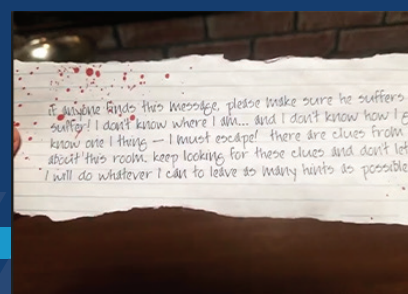 if anyone finds this message, please make sure he suffers
suffer! I don't know where I am... and I don't know how I g
know one thing – I must escape! there are clues from
about this room. keep looking for these clues and don't let
I will do whatever I can to leave as many hints as possible